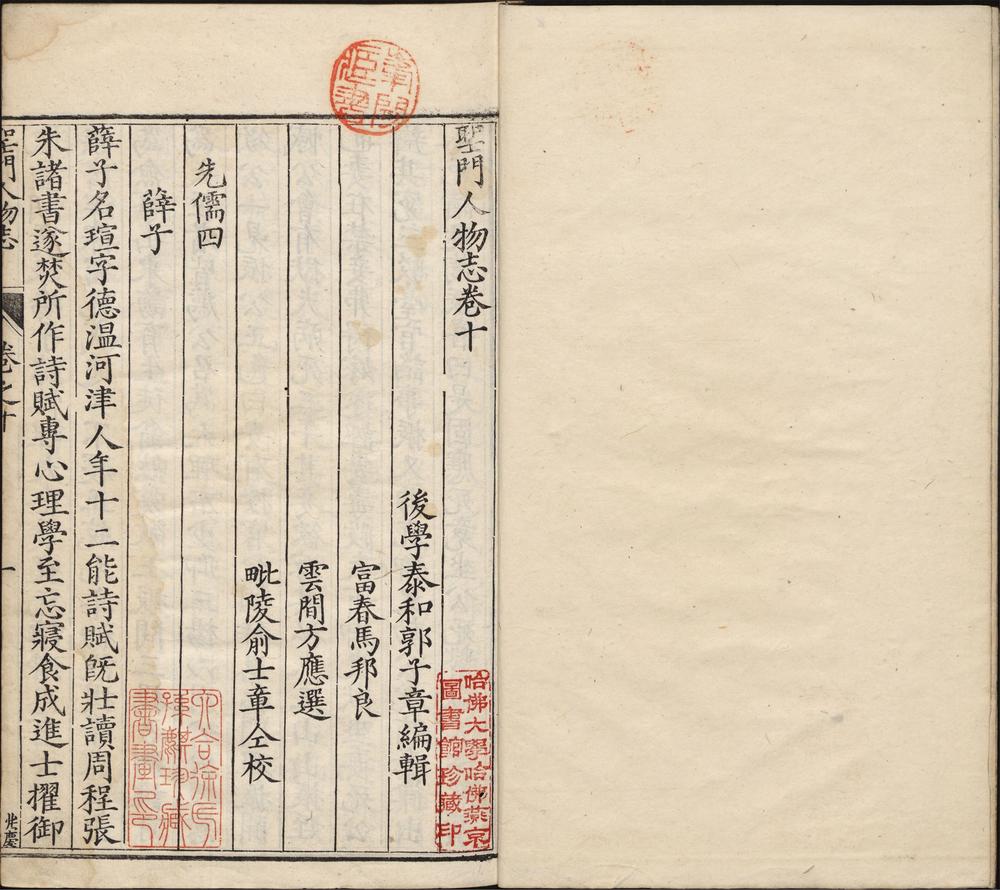 聖門人物志卷十
後學泰和郭子章編輯
富春馬邦良
雲間方應選
毗陵俞士章仝校
先儒四
薛子
薛子名瑄字德温河津人年十二能詩賦旣壯讀周程張
朱諸書遂焚所作詩賦專心理學至忘寢食成進士擢御
聖門人物志
卷之十
一
哈佛大學哈佛燕京
圖書館珍藏印